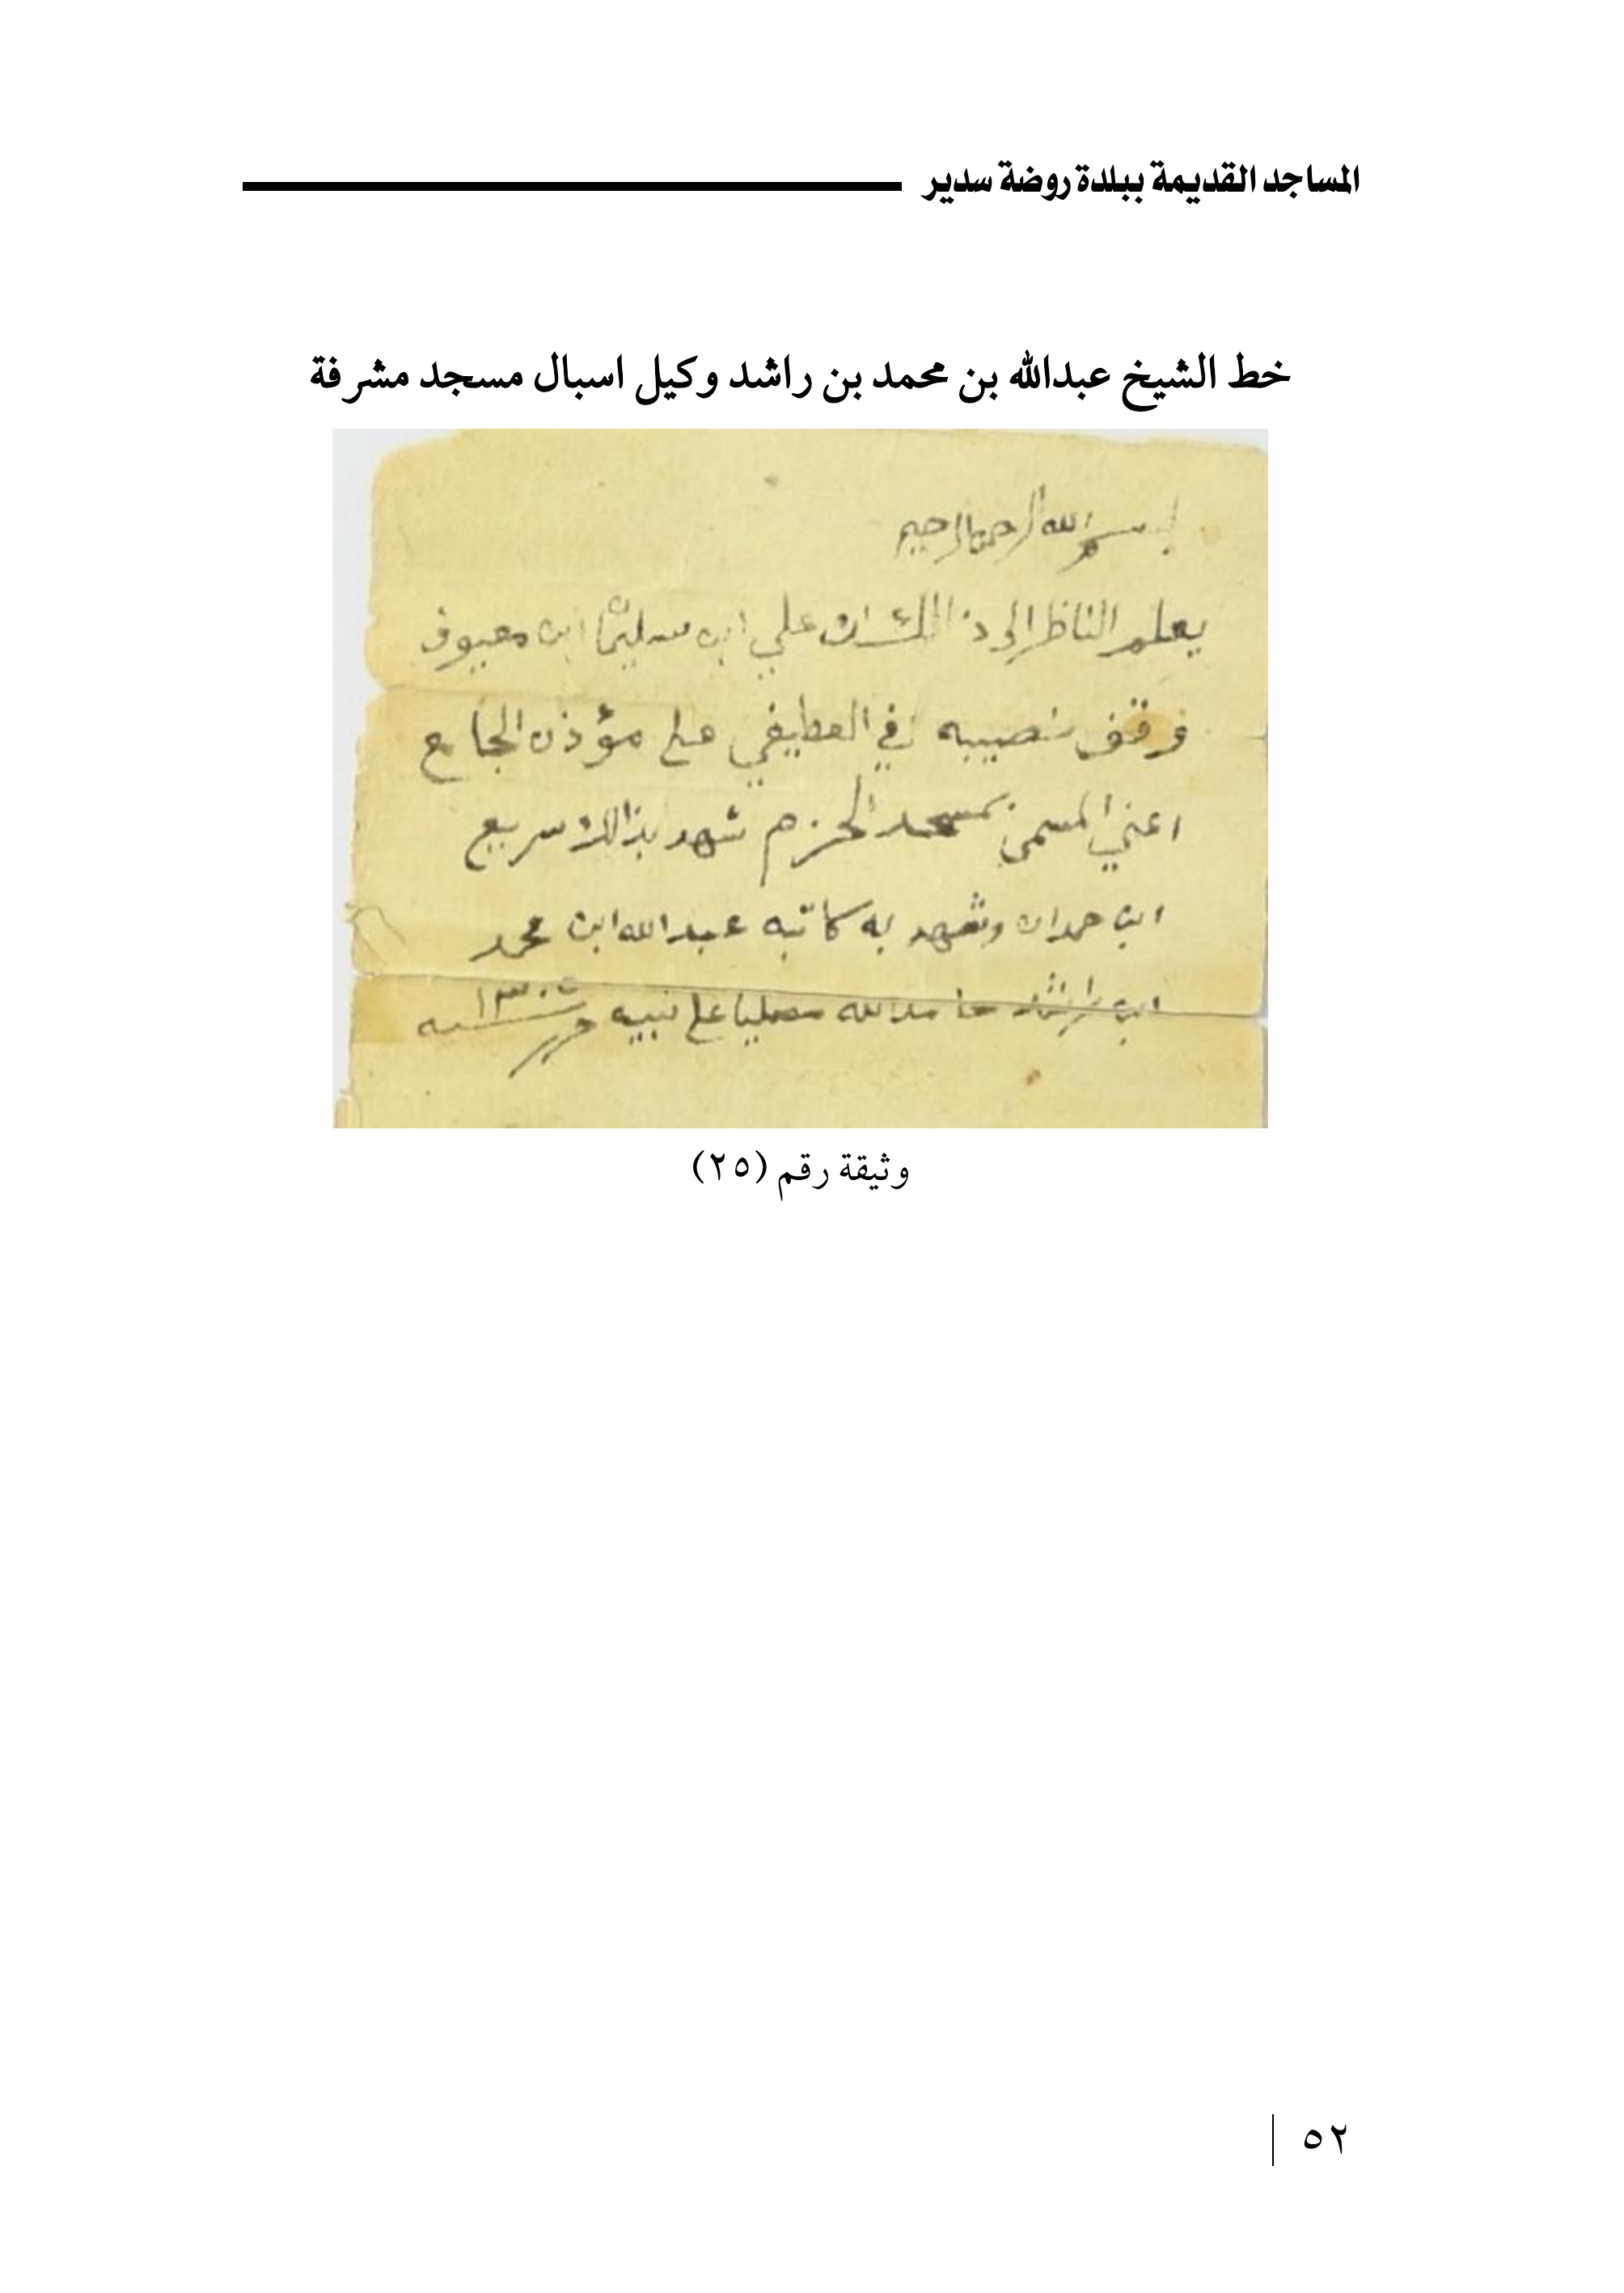 المساجد القديمة ببلدة روضة سدير
خط الشيخ عبدالله بن محمد بن راشد وكيل اسبال مسجد مشرفة
بسم الله الرحمن الرحيم
يعلم الناظر الى ذالك ان علي ابن سليمان ابن معيوف
وقف نصيبه في العطيفي على مؤذن الجامع
اعني المسمى بمسجد الحزم شهد بذالك سريع
ابن حمدان وشهد به كاتبه عبدالله ابن محمد
ابن راشد حامدا لله مصليا على نبيه حرر سنه
وثيقة رقم (٢٥)
٥٢